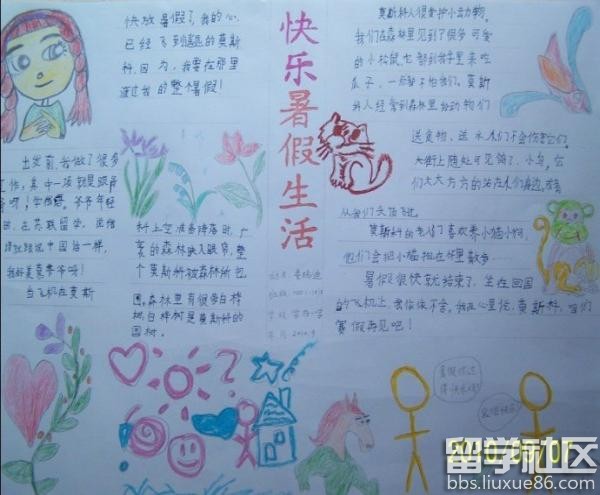 快乐暑假生活
快放暑假了,我的心
已经飞到遥远的莫斯
科,因为,我要在那里
渡过我的整个暑假!
出发前,我做了很多
工作,其中一项就是跟爷爷
爷爷年轻
时,在苏联留学,
说中国话一样,
我好羡慕爷爷啊!
当飞机在莫斯
科上空准备降落时,广
袤的森林映入眼帘,整
个莫斯科被森林所包
围。森林里有很多白桦
树,白桦树是莫斯科的
国树。
莫斯科人很爱护小动物。
我们在森林里见到了很多可爱
的小松鼠,它都到我手里来吃
瓜子,一点都不怕我们。莫斯
科人经常到森林里给动物们
送食物,人们不会伤害它们。
大街上随处可见鸽子、小鸟,它
们大大方方的站在人们身边,或者
从我们头顶飞过
莫斯科的老人们喜欢养小猫小狗,
他们会把小猫抱在怀里散步。
暑假很快就结束了,坐在回国
的飞机上,我依依不舍,我在心里说,莫斯科,咱们
寒假再见吧!
姓名
班级
学校
2010/09/07
留学社区
bbs.liuxue86.com